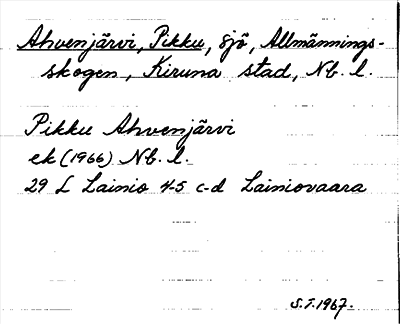 Ahvenjärvi, Pikku, sjö, Allmännings-
skogen, Kiruna stad, Nb. l.
Pikku Ahvenjärvi
ek (1966) Nb. l.
29 L Lainio 4-5 c-d Lainiovaara
S.S.1967.